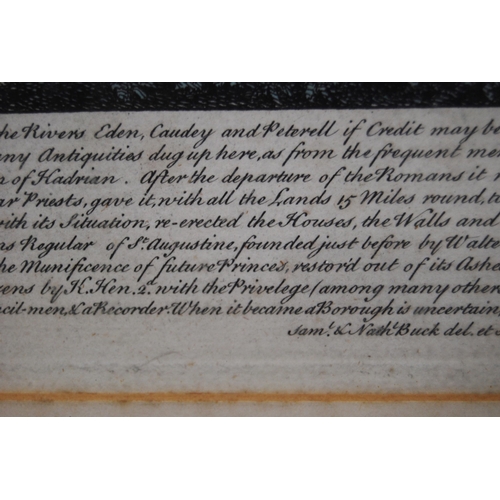 the Rivers Eden, Caudey and Peterell if Credit may be
any Antiquities dug up here, as from the frequent men
n of Hadrian. After the departure of the Romans it
ar Priests, gave it, with all the Lands 15 Miles round, to
with its Situation, re-erected the Houses, the Walls and
ns Regular of St. Augustine, founded just before by Walte
the Munificence of future Princes, restor'd out of its Ashe
zens by K. Hen. 2d. with the Privelege (among many other
cil-men, & a Recorder. When it became a Borough is uncertain,
Saml. & Nathl. Buck del. et S